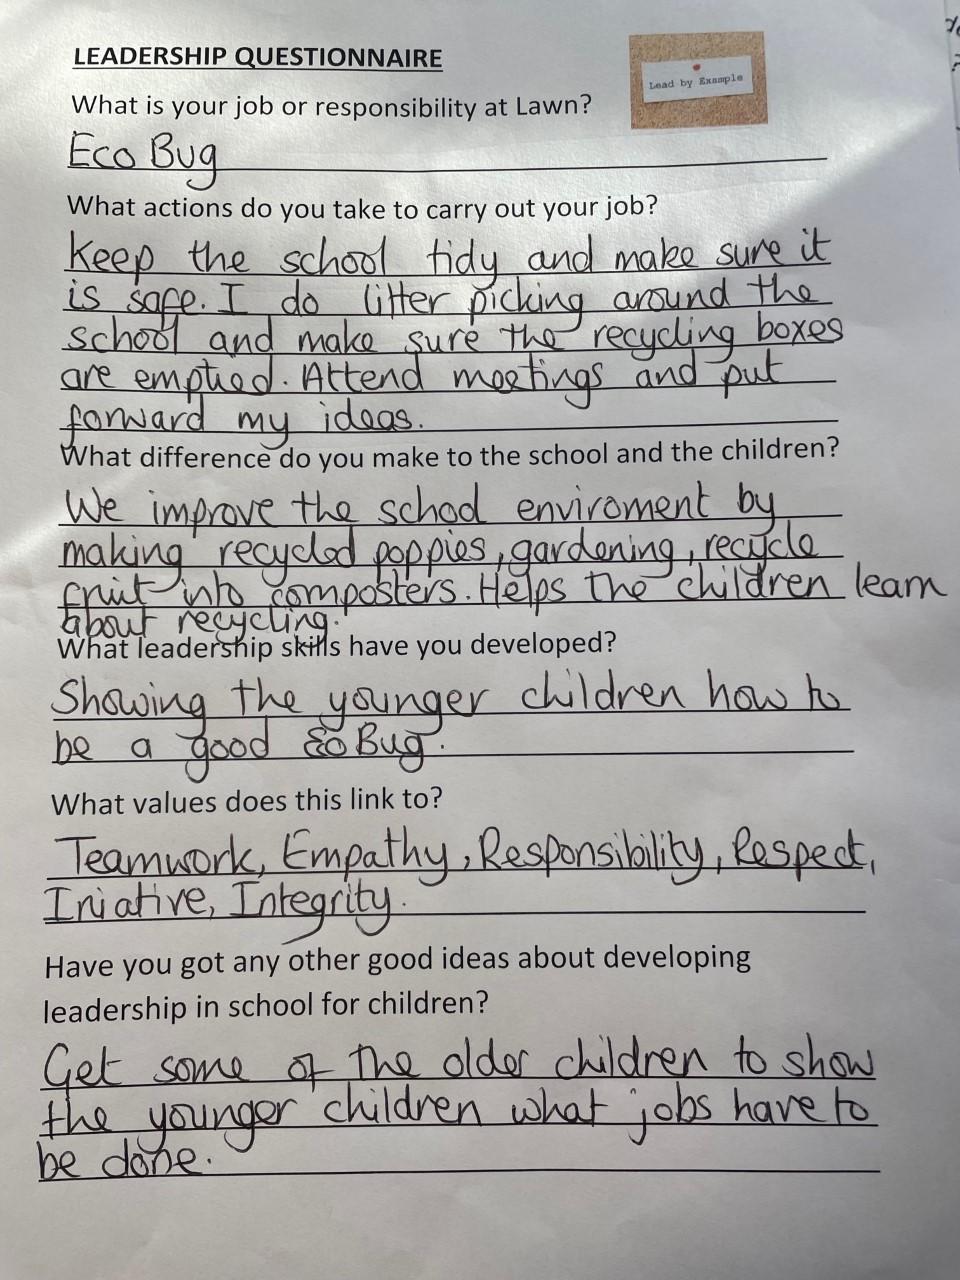 LEADERSHIP QUESTIONNAIRE
Lead by Example
What is your job or responsibility at Lawn?
Eco Bug
What actions do you take to carry out your job?
Keep the school tidy and make sure it
is safe. I do litter picking around the
school and make sure the recycling boxes
are emptied. Attend meetings and put
forward my ideas.
What difference do you make to the school and the children?
We improve the school enviroment by
making recycled poppies, gardening, recycle
fruit into composters. Helps the children learn
about recycling.
What leadership skills have you developed?
Showing the younger children how to
be a good Eco Bug.
What values does this link to?
Teamwork, Empathy, Responsibility, Respect,
Iniative, Integrity.
Have you got any other good ideas about developing
leadership in school for children?
Get some of the older children to show
the younger children what jobs have to
be done.